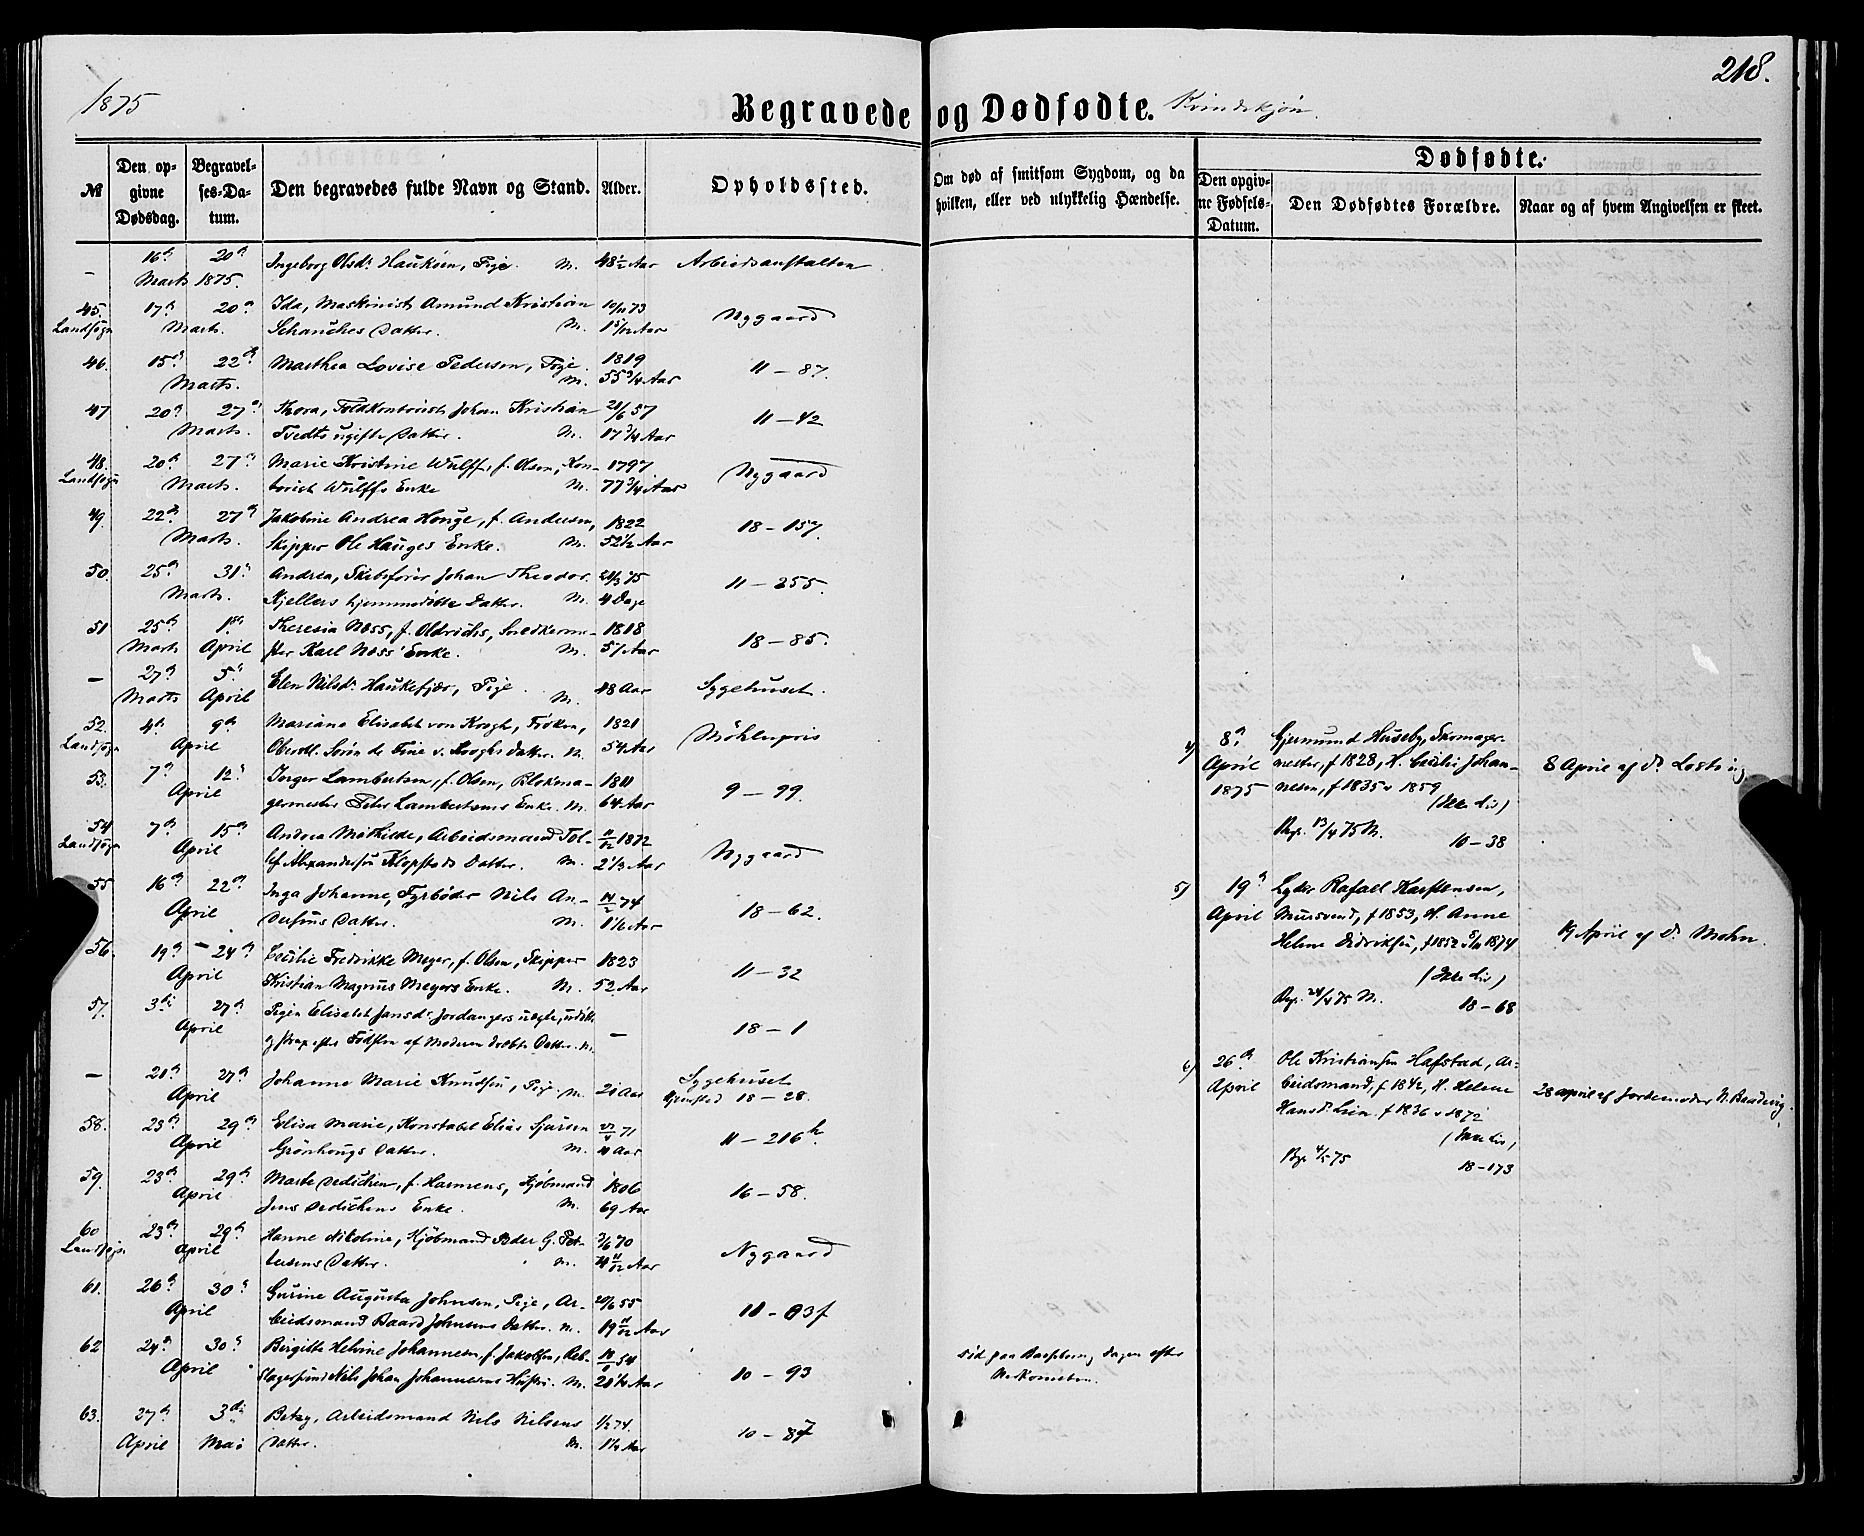 1875
218.
Begravede og Dødfødte. Kvindekjøn.
№
Den opgivne Dødsdag.
Begravelses-Datum.
Den begravedes fulde Navn og Stand.
Alder.
Opholdssted.
Om død af smitsom Sygdom, og da hvilken, eller ved ulykkelig Hændelse.
Dødfødte.
Den opgivne Fødsels-Datum.
Den Dødfødtes Forældre.
Naar og af hvem Angivelsen er skeet.
— 16de 20de Ingeborg Olsdr. Haukøen, Pige. M. 48½ Aar Arbeidsanstalten
Marts 1875.
45. 17de 20de Ida, Maskinist Amund Kristian 10/11 73 Nygaard
Landsogn Marts. Schanches Datter. M.
46. 15de 22de Marthea Lovise Pedersen, Pige. 1819 11 – 87.
Marts. M. 55¾ Aar
47 20de 27de Thora, Toldkontorist Johan Kristian 28/6 57 11 – 42
Marts. Tvedts ugifte Datter. M. 17¾ Aar
48. 20de 27de Marie Kristine Wulff, f. Olsen, Kon- 1797 Nygaard
Landsogn Marts. torist Wulffs Enke M. 77¾ Aar
49. 22de 27de Jakobine Andrea Houge, f. Andersen, 1822 18 – 157.
Marts. Skipper Ole Hauges Enke. M. 52½ Aar
50. 25de 31te Andrea, Skibsfører Johan Theodor 21/3 75 11 – 255.
Marts. Kjellers hjemmedøbte Datter. M. 4 Dage
51 25de 1ste Theresia Næss, f. Oldrichs, Snedkerme- 1818 18 – 85.
Marts April ster Karl Næss' Enke. M. 57 Aar
— 27de 5te Elen Nilsdr. Haukefjær, Pige. M. 48 Aar Sygehuset.
Marts April
52. 4de 9de Mariane Elisabet von Krogh, Frøken, 1821 Møhlenpris
Landsogn April Oberstl. Søren de Fine v. Kroghs Datter. M. 54 Aar
53. 7de 12te Inger Lambertsen, f. Olsen, Blokma- 1811 9 – 99.
April germester Peter Lambertsens Enke. M. 64 Aar
54 7de 15de Andrea Mathilde, Arbeidsmand Tol- 11/12 1872 Nygaard
Landsogn April lef Alexandersen Klopstads Datter. M. 2⅓ Aar
55 16de 22de Inga Johanne, Fyrbøder Nils An- 14/2 74 18 – 62.
April dersens Datter. M. 1⅙ Aar
56. 19de – 24de Cecilie Fredrikke Meyer, f. Olsen, Skipper 1823 11 – 32
April Kristian Magnus Meyers Enke. M. 52 Aar
57. 3die 27de Pigen Elisabet Jansdr. Jordangers uegte, — 18 – 1
April strax efter Fødslen af Moderen dræbte Datter. M.
— 21de 27de Johanne Marie Knudsen, Pige. M. 21 Aar Sygehuset
April 18 – 28.
58. 23de 29de Elisa Marie, Konstabel Elias Sjursen 27/4 71 11 – 216 k.
April Grønhougs Datter. M. 4 Aar
59. 23de 29de Marte Dedichen, f. Harmens, Kjøbmand 1806 16 – 58.
April Jens Dedichens Enke. M. 69 Aar
60 23de 29de Hanne Nikoline, Kjøbmand Peder G. Pet- 3/6 70 Nygaard
Landsogn April tersens Datter. M. 4 11/12 Aar
61. 26de 30te Gurine Augusta Johnsen, Pige, Ar- 20/5 55 11 – 83 f
April beidsmand Baard Johnsens Datter. M. 19 11/12 Aar
62 24de 30te Birgitte Helene Johannesen, f. Jakobsen, Reb- 14/ 54 10 – 93 Død paa Barselseng Dagen efter
April slagersvend Nils Johan Johannesens Hustru. M. Nedkomsten.
63. 27de 3die Betzy, Arbeidsmand Nils Nilsens 1/2 74. 10 – 87
April Mai Datter. M. 1¼ Aar
4) 8de Gjermund Huseby, Skomager-
April mester, f. 1828, H. Cecilie Johan- 8 April af Dr. Losting
1875 nesen, f 1835 v 1859
(Ikke Liv)
Begr. 13/4 75 M. 10 – 38
5) 19de Lyder Rafael Karstensen,
April Mursvend, f 1853, H. Anne 19 April af Dr. Mohn.
Helene Didriksen, f 1852 1874
(Ikke Liv)
Begr. 24/4 75 M. 18 – 68
6) 26de Ole Kristiansen Hafstad, Ar-
April beidsmand, f 1842, H. Helene 28 april af Jordemoder N. Baadsvig.
Hansdr. Lien f 1836 v 1872
(Ikke Liv)
Begr. 4/5 75 18 – 173